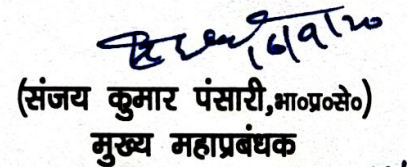 16/9/20
(संजय कुमार पंसारी,भा०प्र०से०)
मुख्य महाप्रबंधक